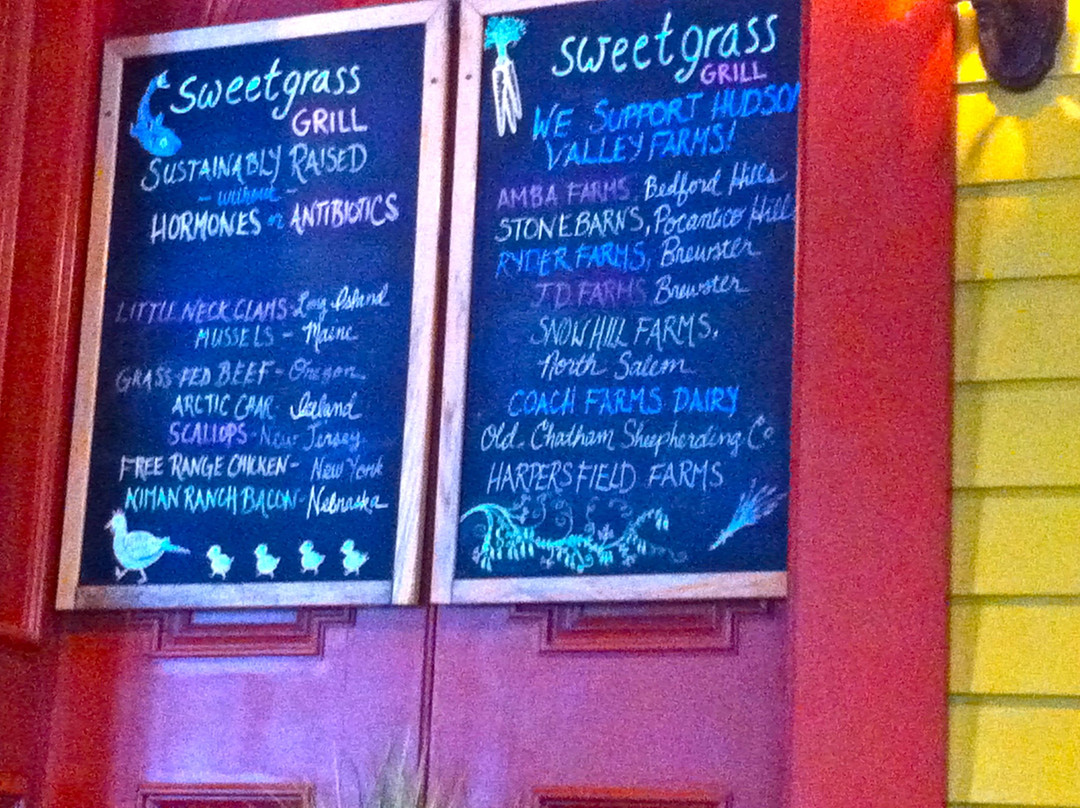 sweetgrass
GRILL
SUSTAINABLY RAISED
- without -
HORMONES or ANTIBIOTICS
LITTLE NECK CLAMS - Long Island
MUSSELS - Maine
GRASS-FED BEEF - Oregon
ARCTIC CHAR - Iceland
SCALLOPS - New Jersey
FREE RANGE CHICKEN - New York
NIMAN RANCH BACON - Nebraska
sweetgrass
GRILL
WE SUPPORT HUDSON
VALLEY FARMS!
AMBA FARMS, Bedford Hills
STONE BARNS, Pocantico Hills
RYDER FARMS, Brewster
J.D. FARMS Brewster
SNOW HILL FARMS,
North Salem
COACH FARMS DAIRY
Old Chatham Sheepherding Co.
HARPERSFIELD FARMS